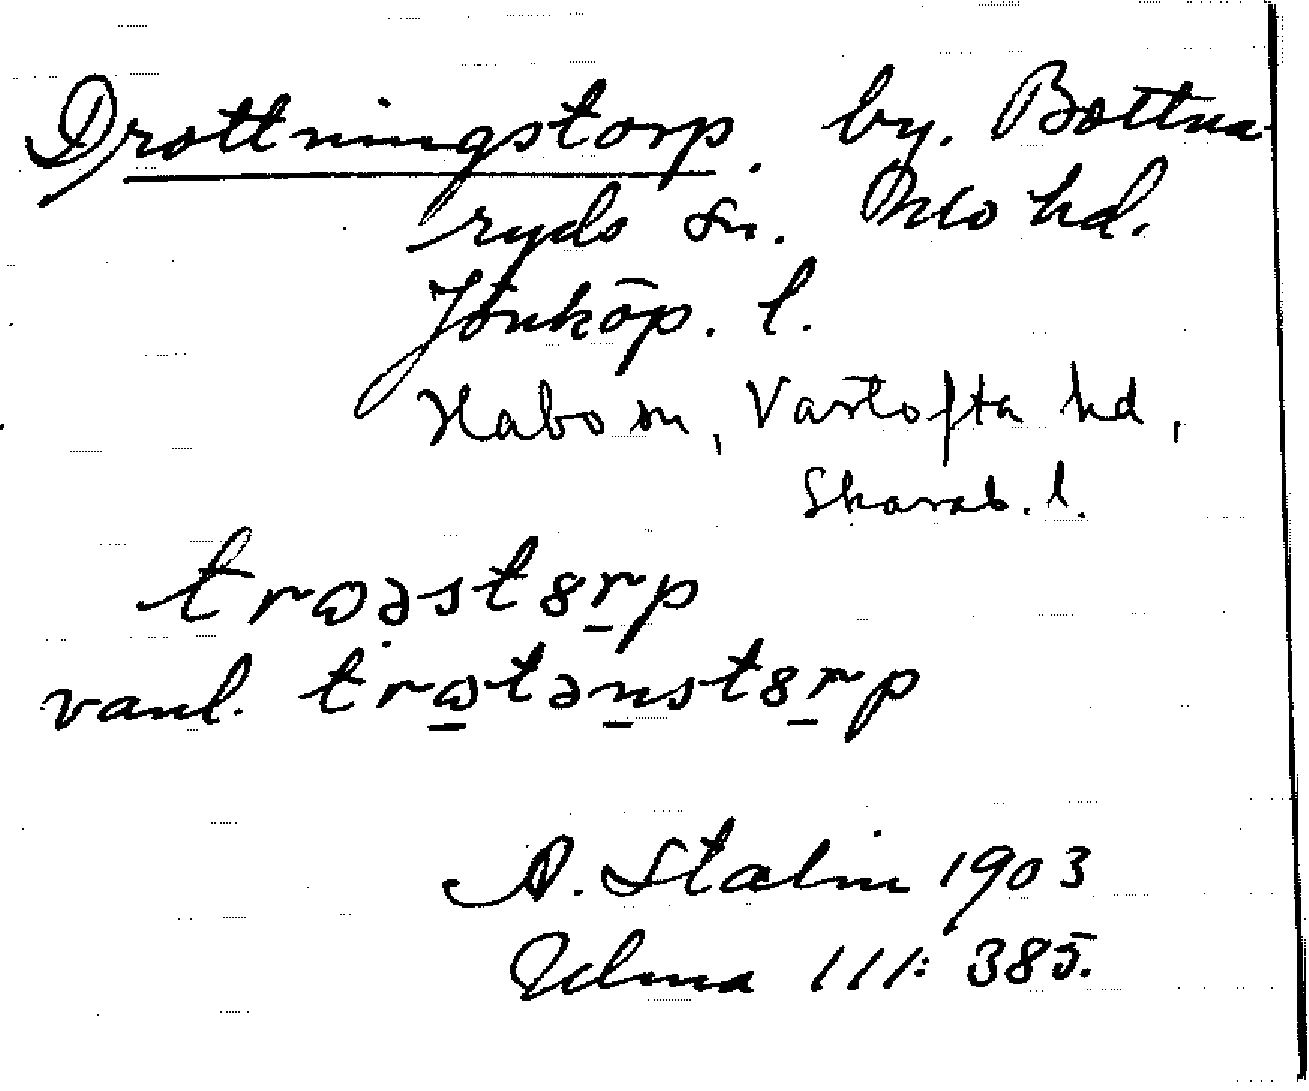 Drottningstorp. by. Bottna-
ryds sn. Mo hd.
Jönköp. l.
Habo sn, Vartofta hd,
Skarab. l.
trωəst8rp
vanl. trωtənst8rp
A. Stalin 1903
Ulma 111: 385.